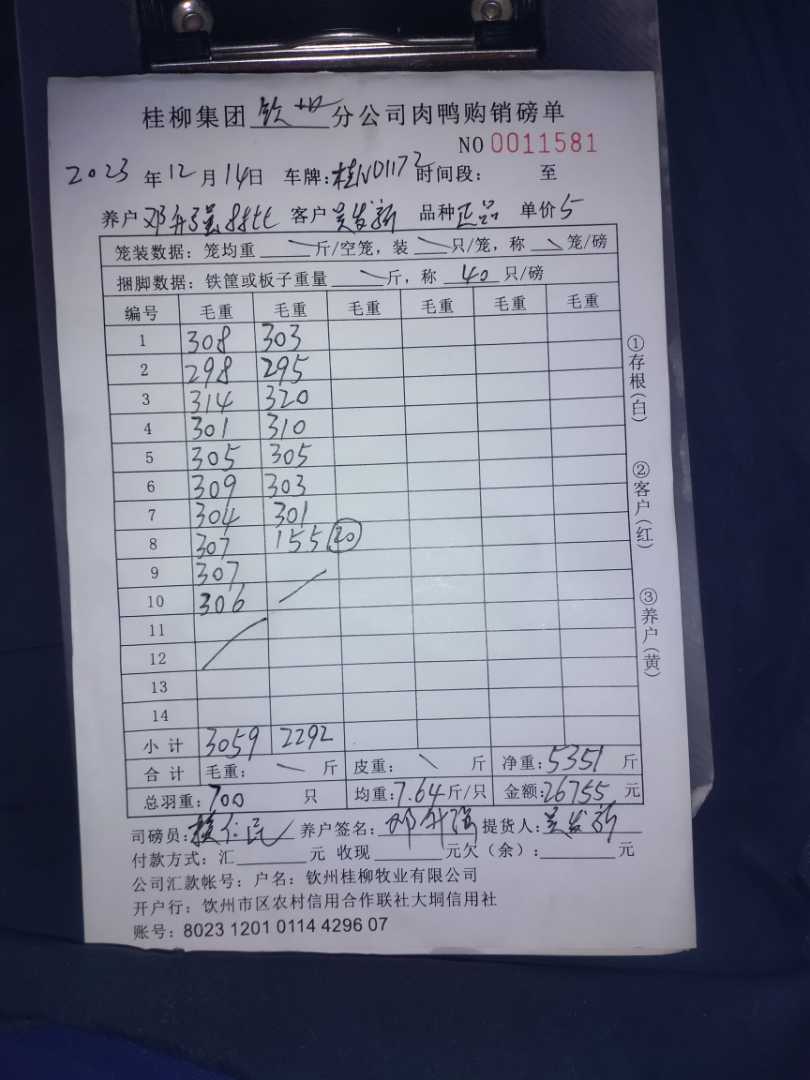 桂柳集团 钦州 分公司肉鸭购销磅单
NO 0011581
2023 年 12 月 14 日 车牌: 桂N01172 时间段: 至
养户 邓升强 客户 吴发新 品种 正品 单价 5
笼装数据: 笼均重 \ 斤/空笼, 装 \ 只/笼, 称 \ 笼/磅
捆脚数据: 铁筐或板子重量 \ 斤, 称 40 只/磅
编号 毛重 毛重 毛重 毛重 毛重 毛重
1 308 303
2 298 295
3 314 320
4 301 310
5 305 305
6 309 303
7 304 301
8 307 155 20
9 307
10 306
11
12
13
14
小计 3059 2292
合计 毛重: \ 斤 皮重: \ 斤 净重: 5351 斤
总羽重: 700 只 均重: 7.64 斤/只 金额: 26755 元
司磅员: 养户签名: 邓升强 提货人: 吴发新
付款方式: 汇 元 收现 元欠(余): 元
公司汇款帐号: 户名: 钦州桂柳牧业有限公司
开户行: 钦州市区农村信用合作联社大垌信用社
账号: 8023 1201 0114 4296 07
①存根(白)
②客户(红)
③养户(黄)